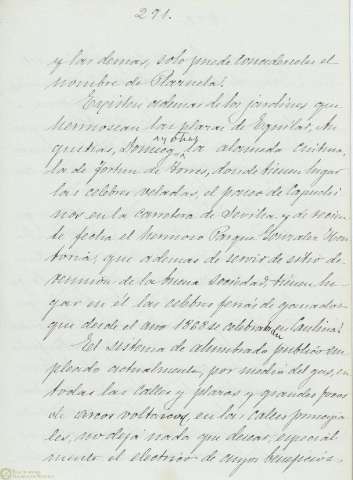 291.
y las demas, solo puede concederles el
nombre de Plazuela.
Existen ademas de los jardines que
hermosean las plazas de Eguilaz,
y otras
la alameda
la de Fortun de Torres, donde tienen lugar
las celebres veladas, el paseo de Capuchi
nos en la carretera de Sevilla y de recien
te fecha el hermoso Parque Gonzalez Hon
toria, que ademas de servir de sitio de
reunión de la buena sociedad, tienen lu
gar en él las celebres ferias de ganados
que desde el año 1868 se celebraban en Caulina.
El sistema de alumbrado publico em
pleado actualmente, por medio del gas, en
todas las calles y plazas y grandes focos
de arcos voltaicos, en las calles principa
les, no deja nada que desear, especial
mente el electrico de cuyos beneficios